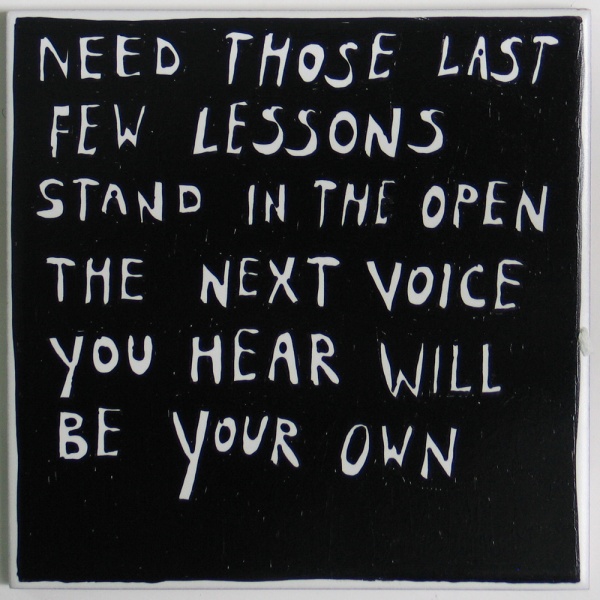 NEED THOSE LAST
FEW LESSONS
STAND IN THE OPEN
THE NEXT VOICE
YOU HEAR WILL
BE YOUR OWN